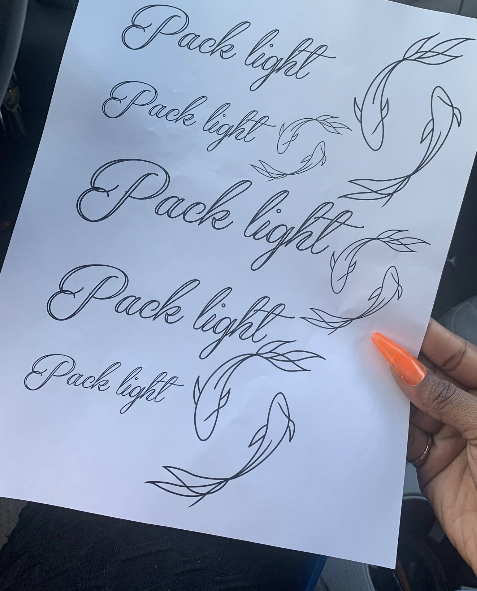 Pack light
Pack light
Pack light
Pack light
Pack light